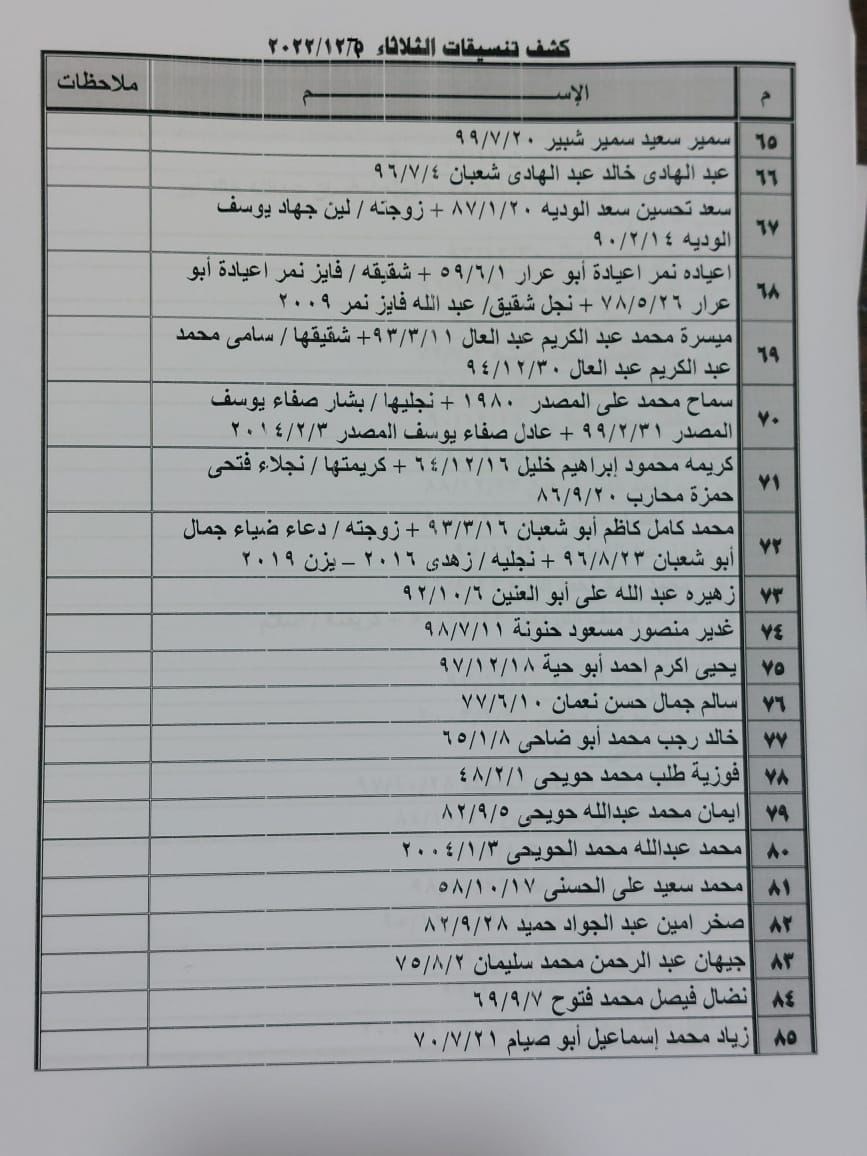 كشف تنسيقات الثلاثاء ٢٠٢٢/١٢/
م الإســـم ملاحظات
٦٥ سمير سعيد سمير شبير ٩٩/٧/٢٠
٦٦ عبد الهادى خالد عبد الهادى شعبان ٩٦/٧/٤
٦٧ سعد تحسين سعد الوديه ٨٧/١/٢٠ + زوجته / لين جهاد يوسف
الوديه ٩٠/٢/١٤
٦٨ اعياده نمر اعيادة أبو عرار ٥٩/٦/١ + شقيقه / فايز نمر اعيادة أبو
عرار ٧٨/٥/٢٦ + نجل شقيق/ عبد الله فايز نمر ٢٠٠٩
٦٩ ميسرة محمد عبد الكريم عبد العال ٩٣/٣/١١+ شقيقها / سامى محمد
عبد الكريم عبد العال ٩٤/١٢/٣٠
٧٠ سماح محمد على المصدر ١٩٨٠ + نجليها / بشار صفاء يوسف
المصدر ٩٩/٢/٣١ + عادل صفاء يوسف المصدر ٢٠١٤/٢/٣
٧١ كريمه محمود إبراهيم خليل ٦٤/١٢/١٦ + كريمتها / نجلاء فتحى
حمزة محارب ٨٦/٩/٢٠
٧٢ محمد كامل كاظم أبو شعبان ٩٣/٣/١٦ + زوجته / دعاء ضياء جمال
أبو شعبان ٩٦/٨/٢٣ + نجليه / زهدى ٢٠١٦ – يزن ٢٠١٩
٧٣ زهيره عبد الله على أبو العنين ٩٢/١٠/٦
٧٤ غدير منصور مسعود حنونة ٩٨/٧/١١
٧٥ يحيى اكرم احمد أبو حية ٩٧/١٢/١٨
٧٦ سالم جمال حسن نعمان ٧٧/٦/١٠
٧٧ خالد رجب محمد أبو ضاحى ٦٥/١/٨
٧٨ فوزية طلب محمد حويحى ٤٨/٢/١
٧٩ ايمان محمد عبدالله حويحى ٨٢/٩/٥
٨٠ محمد عبدالله محمد الحويحى ٢٠٠٤/١/٣
٨١ محمد سعيد على الحسنى ٥٨/١٠/١٧
٨٢ صخر امين عبد الجواد حميد ٨٢/٩/٢٨
٨٣ جيهان عبد الرحمن محمد سليمان ٧٥/٨/٢
٨٤ نضال فيصل محمد فتوح ٦٩/٩/٧
٨٥ زياد محمد إسماعيل أبو صيام ٧٠/٧/٢١